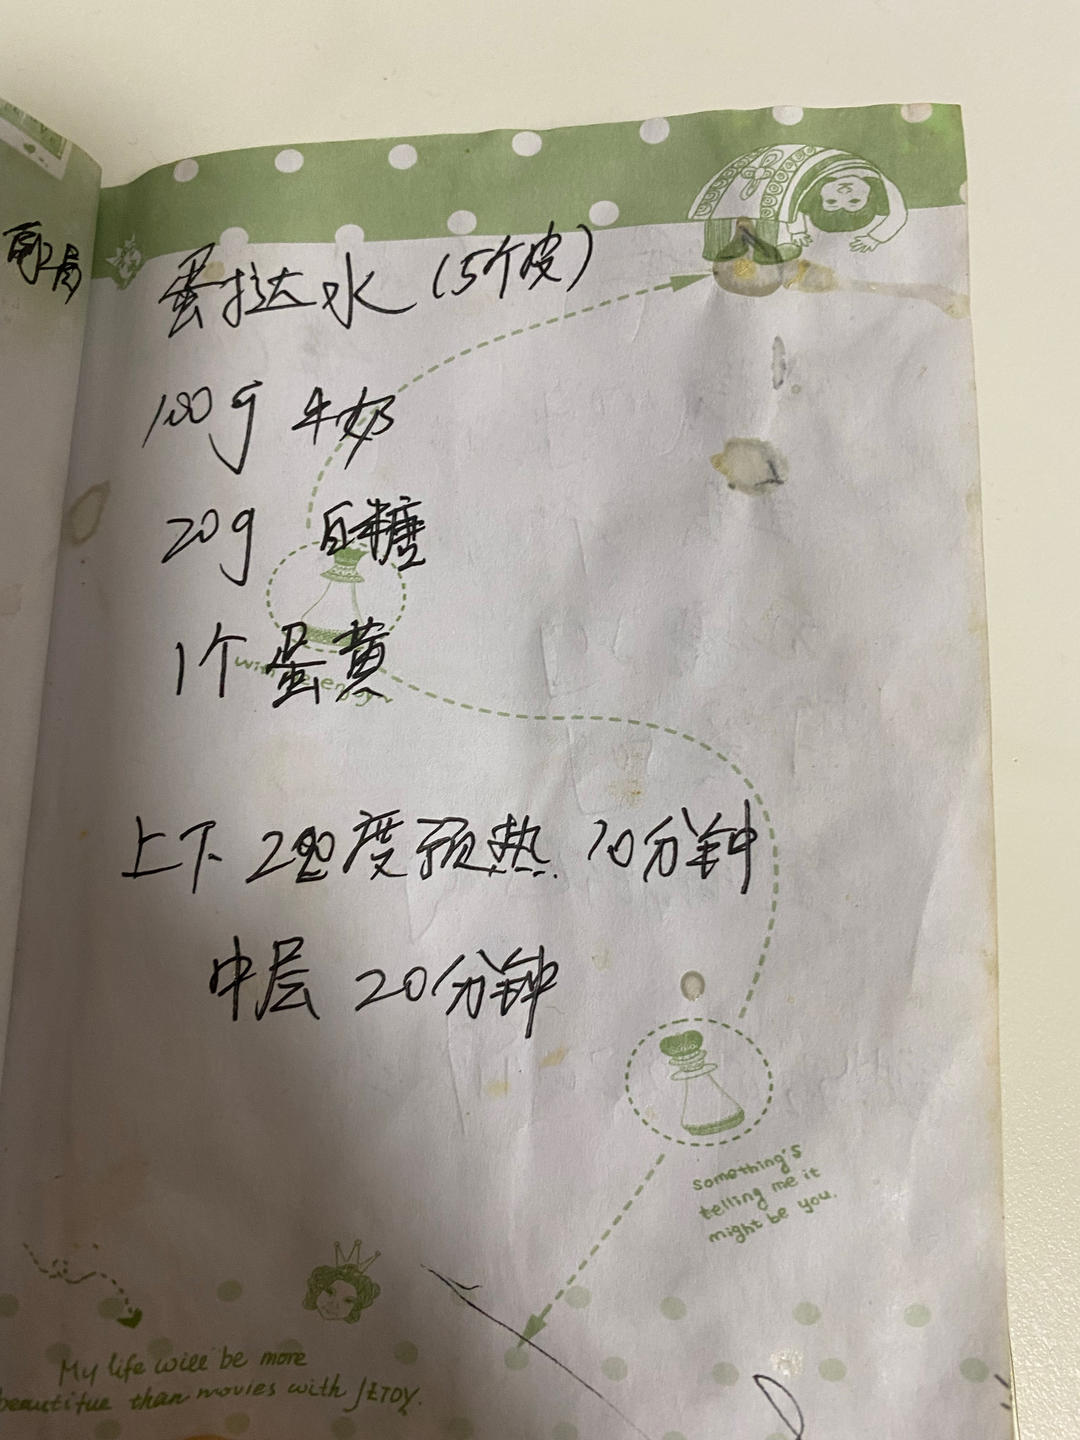 蛋挞水(5个皮)
100g 牛奶
20g 白糖
1个蛋黄
上下 200度预热 10分钟
中层 20分钟
something's
telling me it
might be you.
My life will be more
beautiful than movies with JETOY.